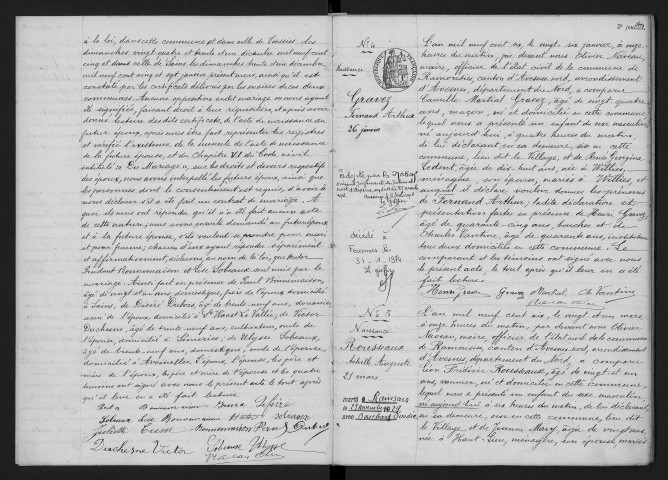 à la loi, dans cette commune et dans celle de
dimanches vingt quatre et trente et un décembre mil neuf cent
cinq et dans celle de Sains les dimanches trente et un décembre
mil neuf cent cinq et sept janvier présent mois, ainsi qu'il est
constaté par les certificats délivrés par les maires de ces deux
communes. Aucune opposition audit mariage ne nous ayant
été signifiée, faisant droit à leur réquisition, et après avoir
donné lecture des dits certificats, de l'acte de naissance du
futur époux, après nous être fait représenter les registres
et vérifié l'existence de la minute de l'acte de naissance
de la future épouse, et du Chapitre VI du Code civil
intitulé Du Mariage, sur les droits et devoirs respectifs
des époux, nous avons interpellé les futurs époux, ainsi que
les personnes dont le consentement est requis, d'avoir à
nous déclarer s'il a été fait un contrat de mariage. A
quoi ils nous ont répondu qu'il n'a été fait aucun acte
de cette nature; nous avons ensuite demandé au futur époux
et à la future épouse, s'ils veulent se prendre pour mari
et pour femme; chacun d'eux ayant répondu séparément
et affirmativement, déclarons, au nom de la loi, que Hector
Prudent Bonnemaison et Lise Lobeaux sont unis par le
mariage. Ainsi fait en présence de Paul Bonnemaison,
âgé de vingt ans, domestique, frère de l'époux, domicilié
à Sains, de Désiré Dubois, âgé de trente neuf ans, douanier,
ami de l'époux, domicilié à St Waast La Vallée; de Victor
Duchesne, âgé de trente neuf ans, cultivateur, oncle de
l'époux, domicilié à Semeries; de Ulysse Lobeaux,
âgé de trente neuf ans, domestique, oncle de l'épouse,
domicilié à Avesnelles. L'époux, l'épouse, les père et
mère de l'époux, les père et mère de l'épouse et les quatre
témoins ont signé avec nous le présent acte après
qu'il leur en a été fait lecture
Duchesne Victor
2e feuillet.
N° 4
Naissance
Gravez
Fernand Arthur
26 janvier
Décédé à
Fourmies le
31-1-1974
L'an mil neuf cent six, le vingt six janvier, à onze
heures du matin, par devant nous Olivier Naveau,
maire, officier de l'état civil de la commune de
Ramousies, canton d'Avesnes sud, arrondissement
d'Avesnes, département du Nord, a comparu
Camille Martial Gravez, âgé de vingt quatre
ans, maçon, né et domicilié en cette commune
lequel nous a présenté un enfant du sexe masculin,
né aujourd'hui, à quatre heures du matin
de lui déclarant, en sa demeure, sise en cette
commune, lieu dit le Village, et de
âgée de dix huit ans, née à Willies,
ménagère, son épouse, mariés à Willies, et
auquel il déclare vouloir donner les prénoms
de Fernand Arthur; ladite déclaration et
présentation faites en présence de Henri Gravez,
âgé de quarante cinq ans, boucher et de
Charles Vantrine, âgé de quarante ans,
tous deux domiciliés en cette commune. Le
comparant et les témoins ont signé avec nous
le présent acte, le tout après qu'il leur en a été
fait lecture.
Gravez Martial Ch Vantrine
N° 5
Naissance
Rousseaux
Achille Auguste
21 mars
marié à Ramousies
le 23 novembre 1929
avec
L'an mil neuf cent six, le vingt et un mars,
à onze heures du matin, par devant nous Olivier
Naveau, maire, officier de l'état civil de la commune
de Ramousies, canton d'Avesnes sud, arrondissement
d'Avesnes, département du Nord, a comparu
Rousseaux, âgé de vingt et un
ans, vannier, né et domicilié en cette commune,
lequel nous a présenté un enfant du sexe masculin,
né aujourd'hui à six heures du matin, de lui déclarant,
en sa demeure, sise en cette commune, lieu dit
le Village, et de Jeanne Mary, âgée de vingt ans,
née à Haut-Lieu, ménagère, son épouse, mariés